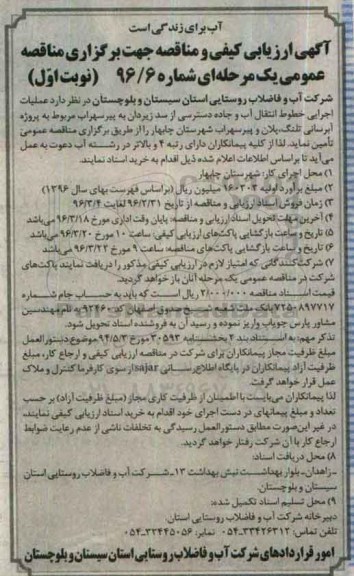 آب برای زندگی است
آگهی ارزیابی کیفی و مناقصه جهت برگزاری مناقصه
عمومی یک مرحله‌ای شماره ۹۶/۶ (نوبت اول)
شرکت آب و فاضلاب روستایی استان سیستان و بلوچستان در نظر دارد عملیات
اجرایی خطوط انتقال آب و جاده دسترسی از سد زیردان به پیرسهراب مربوط به پروژه
آبرسانی تلنگ، پلان و پیرسهراب شهرستان چابهار را از طریق برگزاری مناقصه عمومی
تأمین نماید. لذا از کلیه پیمانکاران دارای رتبه ۴ و بالاتر در رشته آب دعوت به عمل
می‌آید تا براساس اطلاعات اعلام شده ذیل اقدام به خرید اسناد نمایند.
۱) محل اجرای کار: شهرستان چابهار
۲) مبلغ برآورد اولیه ۱۶۰۳۰۳ میلیون ریال (براساس فهرست بهای سال ۱۳۹۶)
۳) زمان فروش اسناد ارزیابی و مناقصه از تاریخ ۹۶/۲/۳۱ لغایت ۹۶/۳/۴
۴) آخرین مهلت تحویل اسناد ارزیابی و مناقصه: پایان وقت اداری مورخ ۹۶/۳/۱۸ می‌باشد
۵) تاریخ و ساعت بازگشایی پاکت‌های ارزیابی کیفی: ساعت ۱۰ مورخ ۹۶/۳/۲۰ می‌باشد
۶) تاریخ و ساعت بازگشایی پاکت‌های مناقصه: ساعت ۹ مورخ ۹۶/۳/۲۲ می‌باشد
۷) شرکت‌کنندگانی که امتیاز لازم در ارزیابی کیفی مذکور را دریافت نمایند پاکت‌های
شرکت در مناقصه عمومی یک مرحله آنان باز خواهد گردید.
قیمت اسناد مناقصه ۲/۰۰۰/۰۰۰ ریال است که باید به حساب جام شماره
۷۲۵۰۸۹۷۷۱۷ بانک ملت شعبه شیخ صدوق اصفهان کد ۹۲۴۶۰ به نام مهندسین
مشاور پارس جویاب واریز نموده و رسید آن به فروشنده اسناد تحویل شود.
تذکر مهم: به استناد بند ۴ بخشنامه ۳۰۵۹۳ مورخ ۹۴/۵/۳ موضوع دستورالعمل
مبلغ ظرفیت مجاز پیمانکاران برای شرکت در مناقصه ارزیابی کیفی و ارجاع کار، مبلغ
ظرفیت آزاد پیمانکاران در پایگاه اطلاع رسانی sajar از سوی کارفرما کنترل و ملاک
عمل قرار خواهد گرفت
لذا پیمانکاران می‌بایست با اطمینان از ظرفیت کاری مجاز (مبلغ ظرفیت آزاد) بر حسب
تعداد و مبلغ پیمانهای در دست اجرای خود اقدام به خرید اسناد ارزیابی کیفی نمایند،
در غیر این صورت مطابق دستورالعمل رسیدگی به تخلفات ناشی از عدم رعایت ضوابط
ارجاع کار با آن شرکت رفتار خواهد گردید.
۸) محل دریافت اسناد:
- زاهدان - بلوار بهداشت نبش بهداشت ۱۳ - شرکت آب و فاضلاب روستایی استان
سیستان و بلوچستان.
۹) محل تسلیم اسناد تکمیل شده:
دبیرخانه شرکت آب و فاضلاب روستایی استان
تلفن تماس: ۳۳۴۲۶۳۱۲-۰۵۴ نمابر: ۳۳۴۴۵۰۵۶-۰۵۴
امور قراردادهای شرکت آب و فاضلاب روستایی استان سیستان و بلوچستان